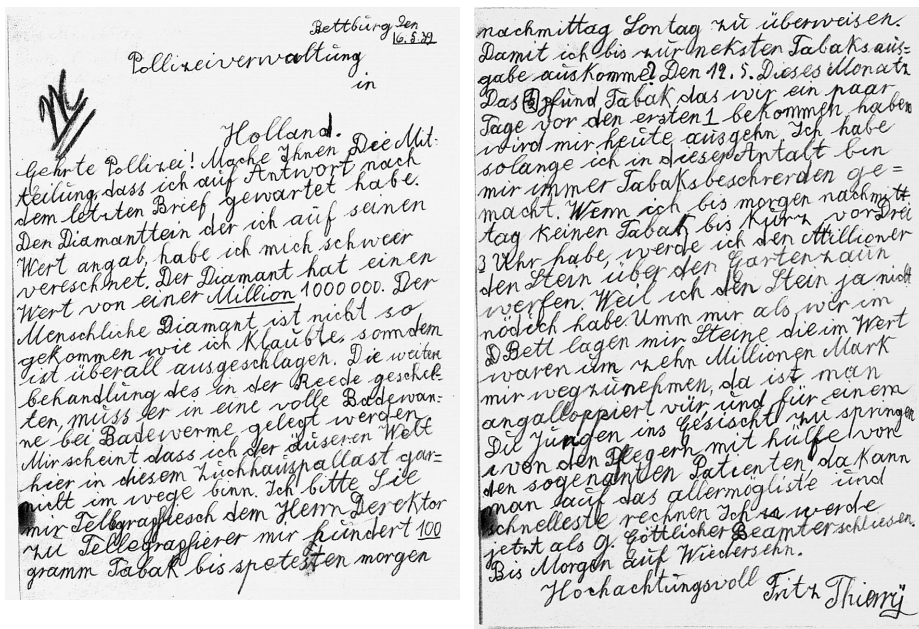 Bettburg den
16.5.39
Pollizeiverwaltung
in
Holland.
Gehrte Pollizei! Mache Ihnen Die Mit-
teilung, dass ich auf Antwort nach
dem letzten Brief gewartet habe.
Den Diamanttein der ich auf seinen
Wert angab, habe ich mich schweer
vereschnet. Der Diamant hat einen
Wert von einer Million 1000000. Der
Menschliche Diamant ist nicht so
gekommen wie ich Klaubte, sonndem
ist überall ausgeschlagen. Die weitere
behandlung des in der Reede geschick-
ten, müss er in eine volle Badewan-
ne bei Badewerme gelegt werden.
Mir scheint dass ich der äuseren Welt
hier in diesem Zuchhauspallast gar=
nicht im wege binn. Ich bitte Sie
mir Tellegrafiesch dem Herrn Derektor
zu Tellegrafierer mir hundert 100
gramm Tabak bis spetesten morgen
nachmittag Sontag zu überweisen.
Damit ich bis zur neksten Tabaksaus=
gabe auskomme. Den 12.5. Dieses Monatz
Das pfund Tabak, das wir ein paar
Tage vor den ersten 1 bekommen haben
wird mir heute ausgehn. Ich habe
solange ich in dieser Antalt bin
mir immer Tabaksbeschrerden ge=
macht. Wenn ich bis morgen nachmitt
tag keinen Tabak bis Kurz vor Drei
3 Uhr habe, werde ich den Millioner
den Stein über den Gartenzaun
werfen. Weil ich den Stein ja nicht
nödich habe. Umm mir als wir im
Bett lagen mir Steine die im Wert
waren um zehn Millionen Mark
mir wegzunehmen, da ist man
angalloppiert vür und für einem
Du Jungen ins Gesischt zu springen
von den Pflegern mit hülfe von
den sogenanten Patienten, da Kann
man sauf das allermögliste und
schnelleste rechnen. Ich werde
jetzt als G. Göttlicher Beamter schliesen.
Bis Morgen auf Wiedersehn.
Hochachtungsvoll Fritz Thierrÿ